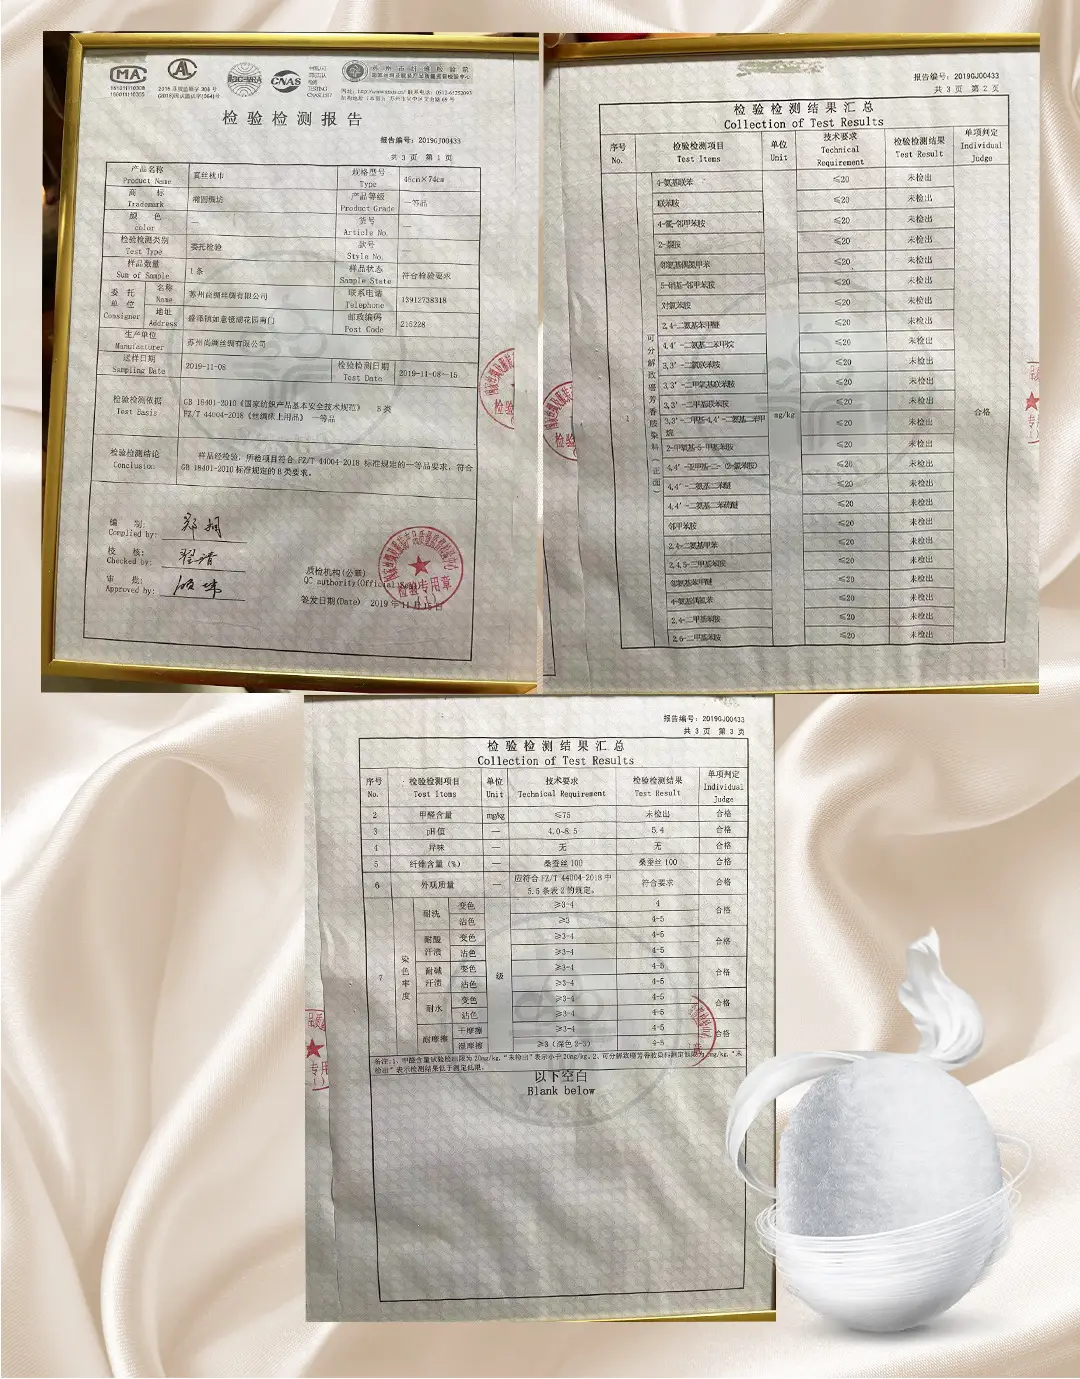 MA
AL
ilac-MRA
CNAS
TESTING
检验检测报告
报告编号: 2019GJ00433
共 3 页 第 1 页
产品名称 Product Name 真丝枕巾 规格型号 Type 48cm×74cm
商标 Trademark 产品等级 Product Grade 一等品
颜色 color — 货号 Article No. —
检验检测类别 Test Type 委托检验 款号 Style No.
样品数量 Sum of Sample 1条 样品状态 Sample State 符合检验要求
委托单位 Consigner 名称 Name 苏州尚绸丝绸有限公司 联系电话 Telephone 13912738318
地址 Address 盛泽镇如意镜湖花园南门 邮政编码 Post Code 215228
生产单位 Manufacturer 苏州尚绸丝绸有限公司
送样日期 Sampling Date 2019-11-08 检验检测日期 Test Date 2019-11-08~15
检验检测依据 Test Basis GB 18401-2010《国家纺织产品基本安全技术规范》 B类
FZ/T 44004-2018《丝绸床上用品》 一等品
检验检测结论 Conclusion 样品经检验，所检项目符合 FZ/T 44004-2018 标准规定的一等品要求，符合
GB 18401-2010 标准规定的 B 类要求。
编制: Complied by:
校核: Checked by:
审批: Approved by:
质检机构(公章)
QC authority(Official Seal)
检验专用章
签发日期(Date) 2019年11月15日
报告编号: 2019GJ00433
共 3 页 第 2 页
检验检测结果汇总
Collection of Test Results
序号 No. 检验检测项目 Test Items 单位 Unit 技术要求 Technical Requirement 检验检测结果 Test Result 单项判定 Individual Judge
1 可分解致癌芳香胺染料（正面） mg/kg 合格
4-氨基联苯 ≤20 未检出
联苯胺 ≤20 未检出
4-氯-邻甲苯胺 ≤20 未检出
2-萘胺 ≤20 未检出
邻氨基偶氮甲苯 ≤20 未检出
5-硝基-邻甲苯胺 ≤20 未检出
对氯苯胺 ≤20 未检出
2,4-二氨基苯甲醚 ≤20 未检出
4,4'-二氨基二苯甲烷 ≤20 未检出
3,3'-二氯联苯胺 ≤20 未检出
3,3'-二甲氧基联苯胺 ≤20 未检出
3,3'-二甲基联苯胺 ≤20 未检出
3,3'-二甲基-4,4'-二氨基二苯甲烷 ≤20 未检出
2-甲氧基-5-甲基苯胺 ≤20 未检出
4,4'-亚甲基-二-(2-氯苯胺) ≤20 未检出
4,4'-二氨基二苯醚 ≤20 未检出
4,4'-二氨基二苯硫醚 ≤20 未检出
邻甲苯胺 ≤20 未检出
2,4-二氨基甲苯 ≤20 未检出
2,4,5-三甲基苯胺 ≤20 未检出
邻氨基苯甲醚 ≤20 未检出
4-氨基偶氮苯 ≤20 未检出
2,4-二甲基苯胺 ≤20 未检出
2,6-二甲基苯胺 ≤20 未检出
报告编号: 2019GJ00433
共 3 页 第 3 页
检验检测结果汇总
Collection of Test Results
序号 No. 检验检测项目 Test Items 单位 Unit 技术要求 Technical Requirement 检验检测结果 Test Result 单项判定 Individual Judge
2 甲醛含量 mg/kg ≤75 未检出 合格
3 pH值 — 4.0~8.5 5.4 合格
4 异味 — 无 无 合格
5 纤维含量 (%) — 桑蚕丝100 桑蚕丝100 合格
6 外观质量 — 应符合 FZ/T 44004-2018 中 5.5 条表 2 的规定。 符合要求 合格
7 染色牢度 级
耐洗 变色 ≥3-4 4 合格
沾色 ≥3 4-5
耐酸汗渍 变色 ≥3-4 4-5 合格
沾色 ≥3-4 4-5
耐碱汗渍 变色 ≥3-4 4-5 合格
沾色 ≥3-4 4-5
耐水 变色 ≥3-4 4-5 合格
沾色 ≥3-4 4-5
耐摩擦 干摩擦 ≥3-4 4-5 合格
湿摩擦 ≥3 (深色 2-3) 4-5
备注:1、甲醛含量试验检出限为 20mg/kg,"未检出"表示小于20mg/kg。2、可分解致癌芳香胺染料测定低限为 5mg/kg,"未
检出"表示检测结果低于测定低限。
以下空白
Blank below